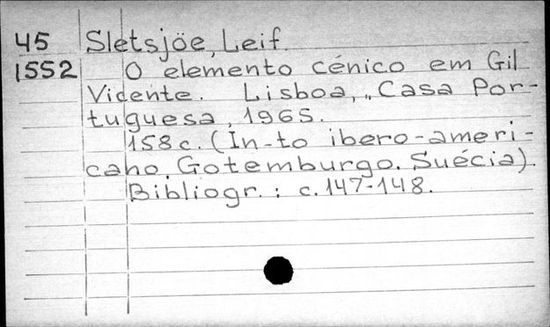 45 Sletsjöe, Leif.
1552 O elemento cénico em Gil
Vicente. Lisboa, „Casa Por-
tuguesa, 1965.
158 c. (In-to ibero-ameri-
cano. Gotemburgo. Suécia).
Bibliogr.: c. 147-148.